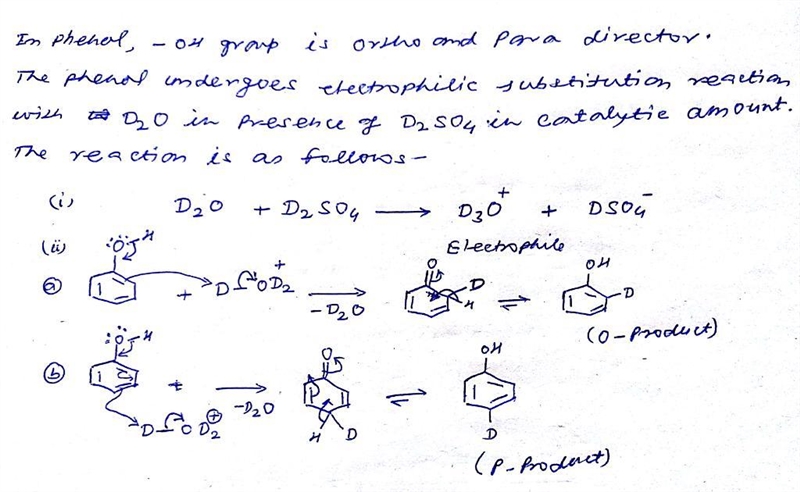 In phenol, -OH group is ortho and para director.
The phenol undergoes electrophilic substitution reaction
with D2O in presence of D2SO4 in catalytic amount.
The reaction is as follows-
(i) D2O + D2SO4 ⟶ D3O+ + DSO4-
Electrophile
(ii)
(a) :Ö-H + D-OD2+ ⟶ -D2O O D H ⇌ OH D
(O-Product)
(b) :Ö-H + D-OD2⊕ ⟶ -D2O O H D ⇌ OH D
(P-Product)